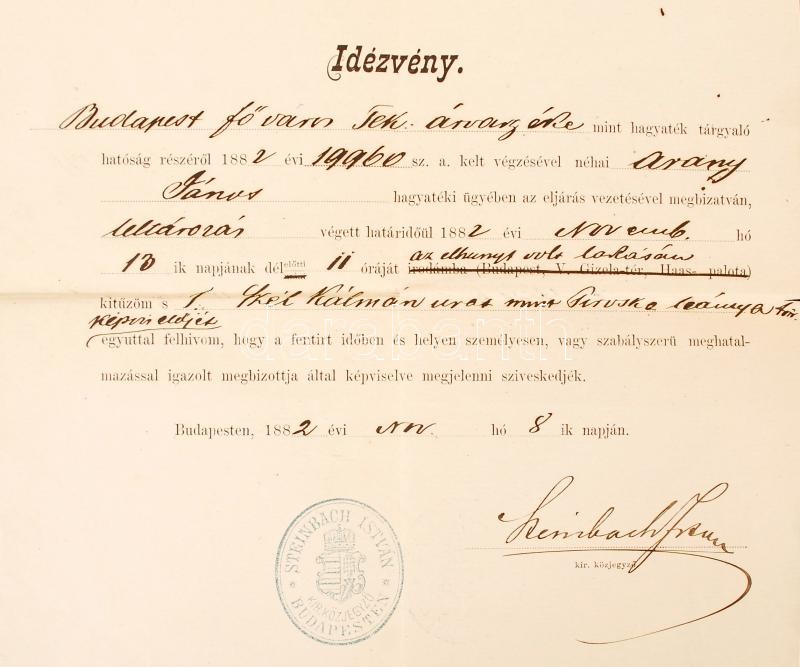 Idézvény.
Budapest főváros Tek. árvaszéke mint hagyaték tárgyaló
hatóság részéről 1882 évi 19960 sz. a. kelt végzésével néhai Arany
János hagyatéki ügyében az eljárás vezetésével megbizatván,
leltározás végett határidőül 1882 évi Novemb. hó
13 ik napjának délelőtti 11 óráját az elhunyt volt lakásán
irodámba (Budapest, V. Gizela-tér, Haas- palota)
kitűzöm s T. Szél Kálmán urat mint Piroska leánya törv.
képviselőjét
egyuttal felhivom, hogy a fentirt időben és helyen személyesen, vagy szabályszerű meghatal-
mazással igazolt megbizottja által képviselve megjelenni sziveskedjék.
darabanth
Budapesten, 1882 évi Nov. hó 8 ik napján.
STEINBACH ISTVÁN
KIR. KÖZJEGYZŐ
BUDAPESTEN
Steinbach István
kir. közjegyző